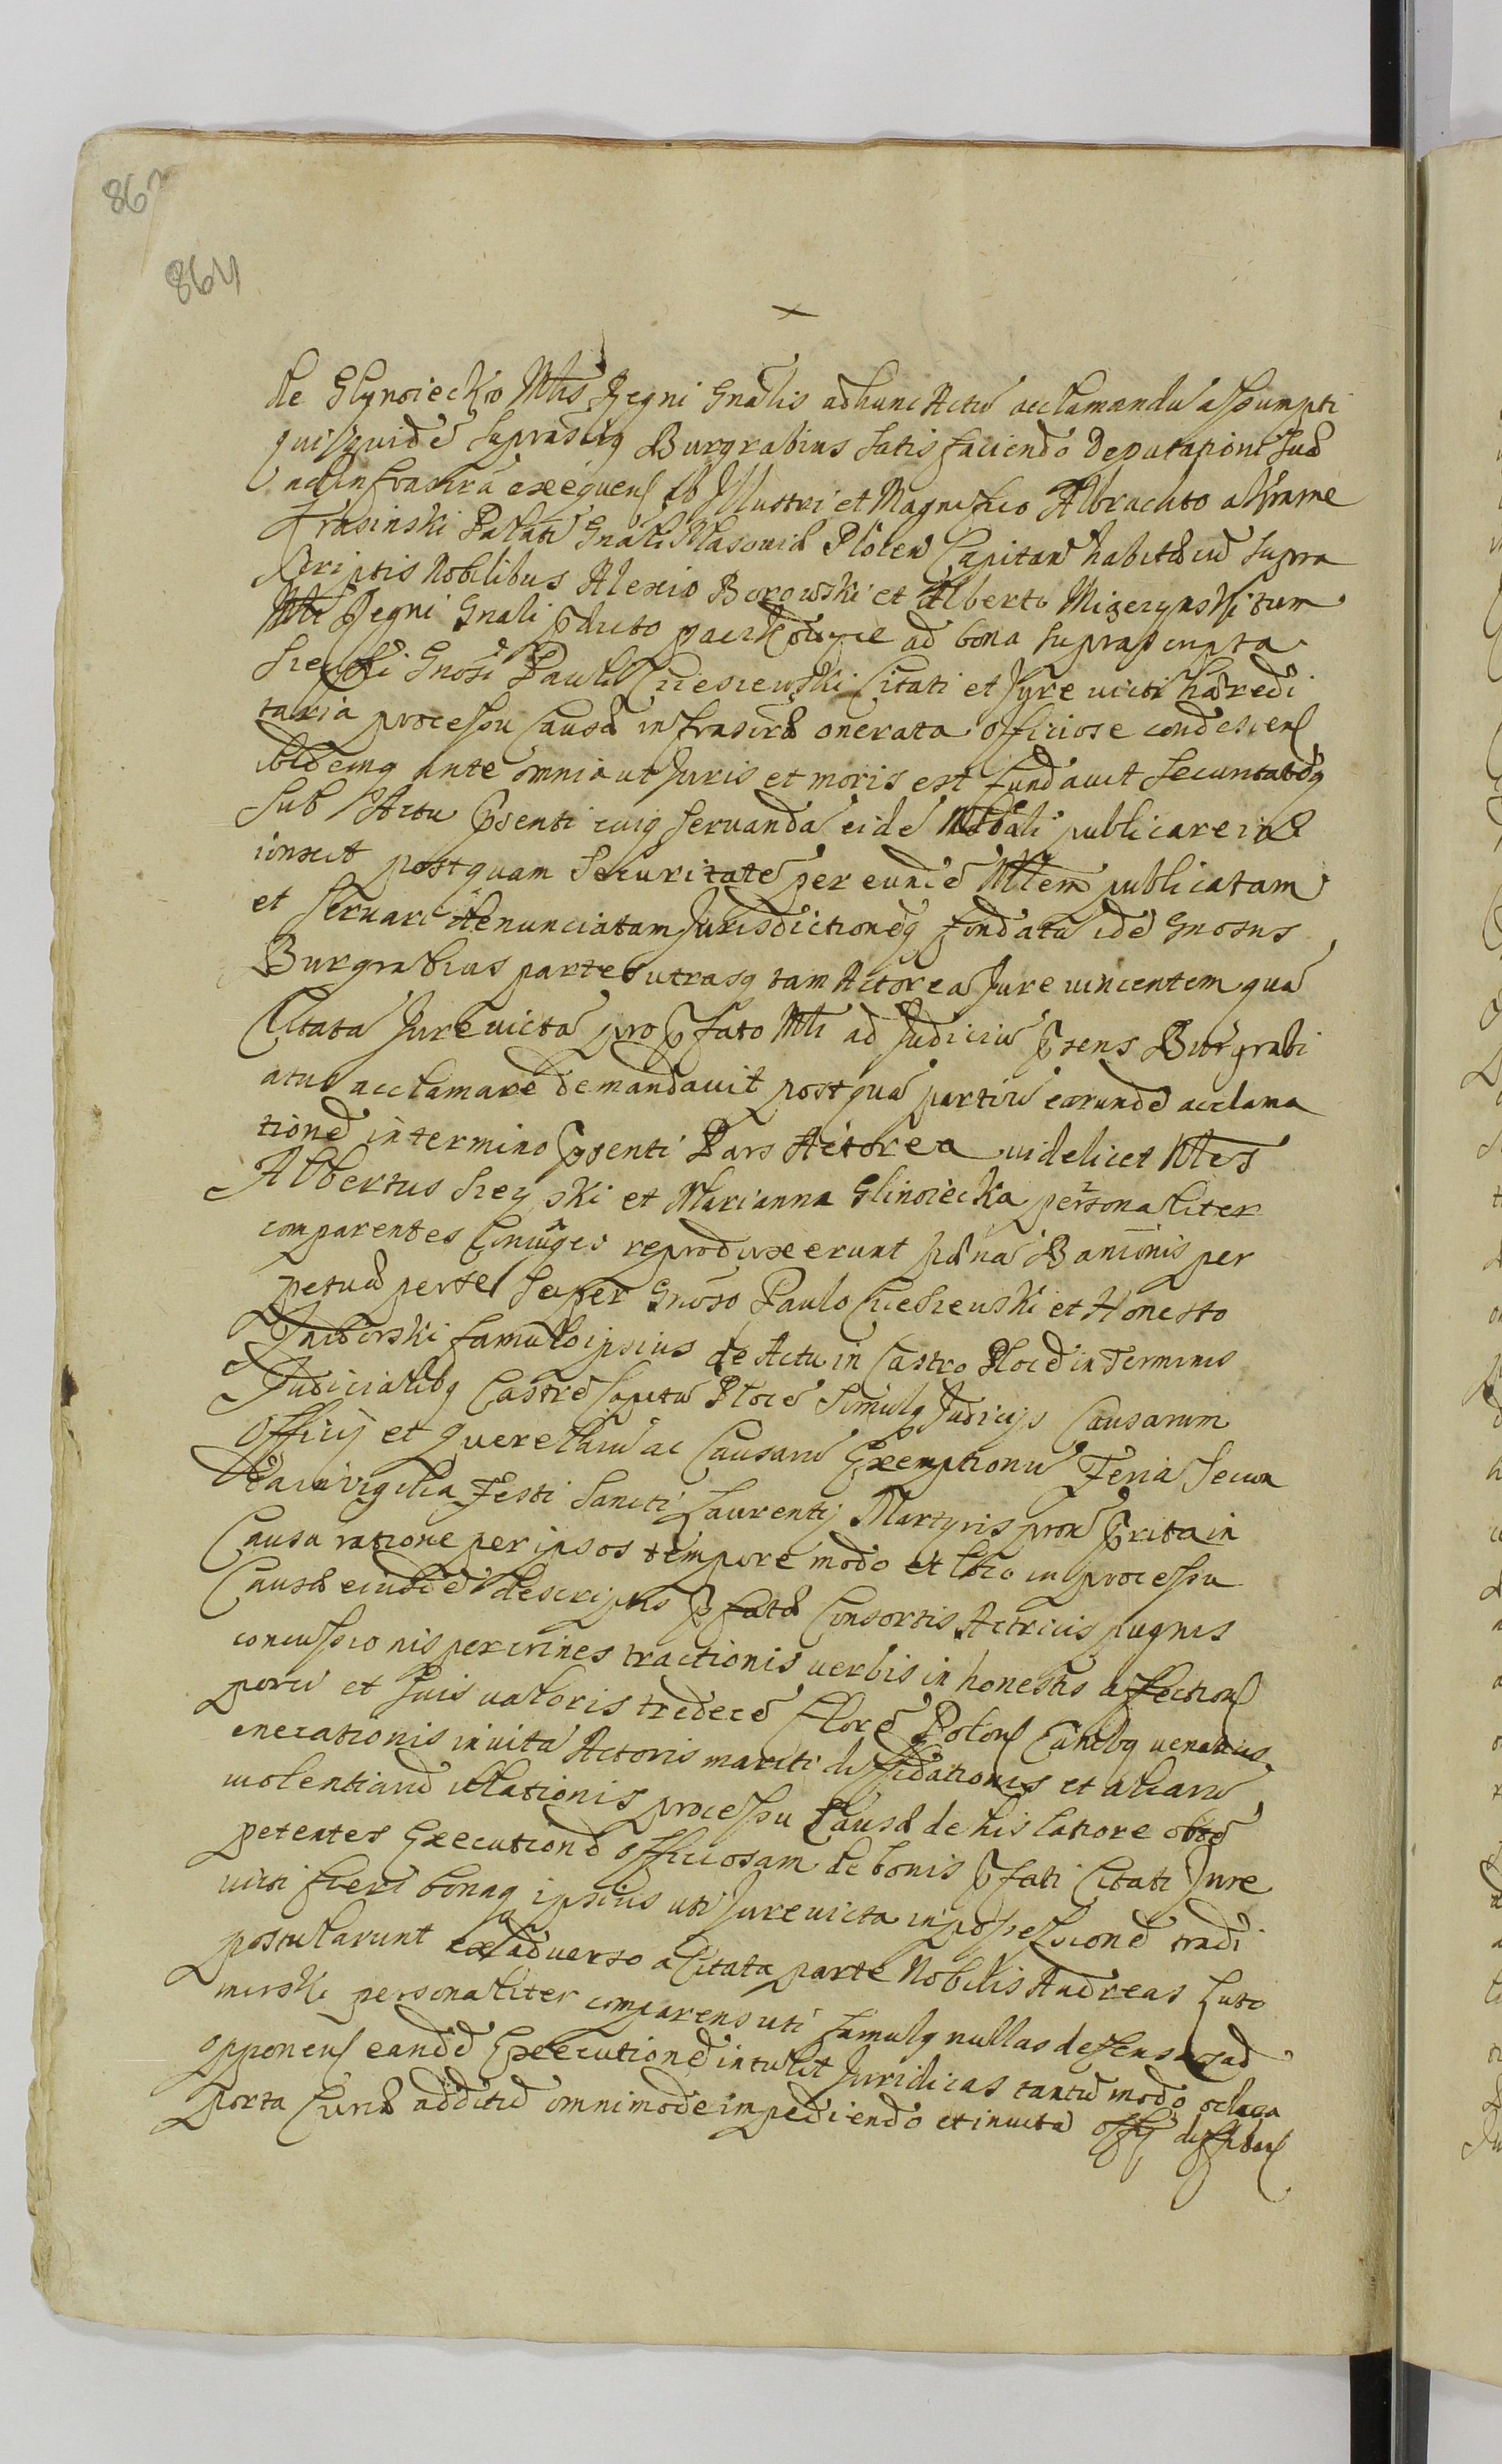 867
864
de Glynoiecko Mtis Regni Gnalis ad hunc Actū acclamandū assumpti
qui siquidē suprascriptq Burgrabius satis faciendo Deputationi suæ
ad infrascrã exequens ab Illustri et Magnifico Albrachto
Krasinski Palatī Gnali Masoviæ Plocen Capitan habitæ cū supra
scriptis Nobilibus Alexio Borowski et Alberto Migezynski tum
Mli Regni Gnali pdicto ad bona suprascripta
Gnosi Pauli Cieszewski Citati et Jure victi hæredi
taria processu Causæ infrascræ onerata officiose condescens
ibidemq ante omnia ut Juris et moris est fundavit Securitatēq
sub Actu psenti cuiq servandā eidē publicare
iunxit postquam Securitatē per eundē Mltem publicatam
et servari denunciatam Jurisdictioneq fundatā idē Gnosus
Burgrabius partes utrasq tam Actoreā Jure vincentem quā
Citatā Jure victā pro pfato Mli ad Judiciū psens Burgrabi
atus acclamare demandavit post quā partiū earundē acclama
tionē in termino psenti Pars Actorea videlicet Mltes
Albertus et Marianna Glinoiecka personaliter
comparentes Coniuges reproduxerunt pænā Banionis per
petuæ super Gnoso Paulo Cieszewski et Honesto
famulo ipsius de Actu in Castro Ploceñ in Terminis
Judicialibq Castreñ Ploceñ simulq Judicijs Causarum
Officij et Querellarū ac Causarū Exemptionū Feria Secun
da in vigilia Festi Sancti Laurentij Martyris prox pterita in
Causa ratione per ipsos tempore modo et loco in processu
Causæ eiusdē descriptis pfatæ Consortis Actricis pugnis
concussionis per crines tractionis verbis inhonestis affections
porci et suis valoris tredecē flore Polons Canibq venaticis
enecationis in vitā Actoris mariti diffidationis et aliarū
violentiarū illationis processu Causæ de his latiore obtē
petentes Executionē officiosam de bonis pfati Citati Jure
victi fieri bonaq ipsius uti Jure victa in possessionē tradi
postularunt ex adverso a Citata parte Nobilis Andreas Luto
mirski personaliter comparens uti famulq nullas defensas ad
opponens eandē Executionē intulit Juridicas tantū modo
porta Curiæ additū omnimode impediendo et in vitā offij diffidans